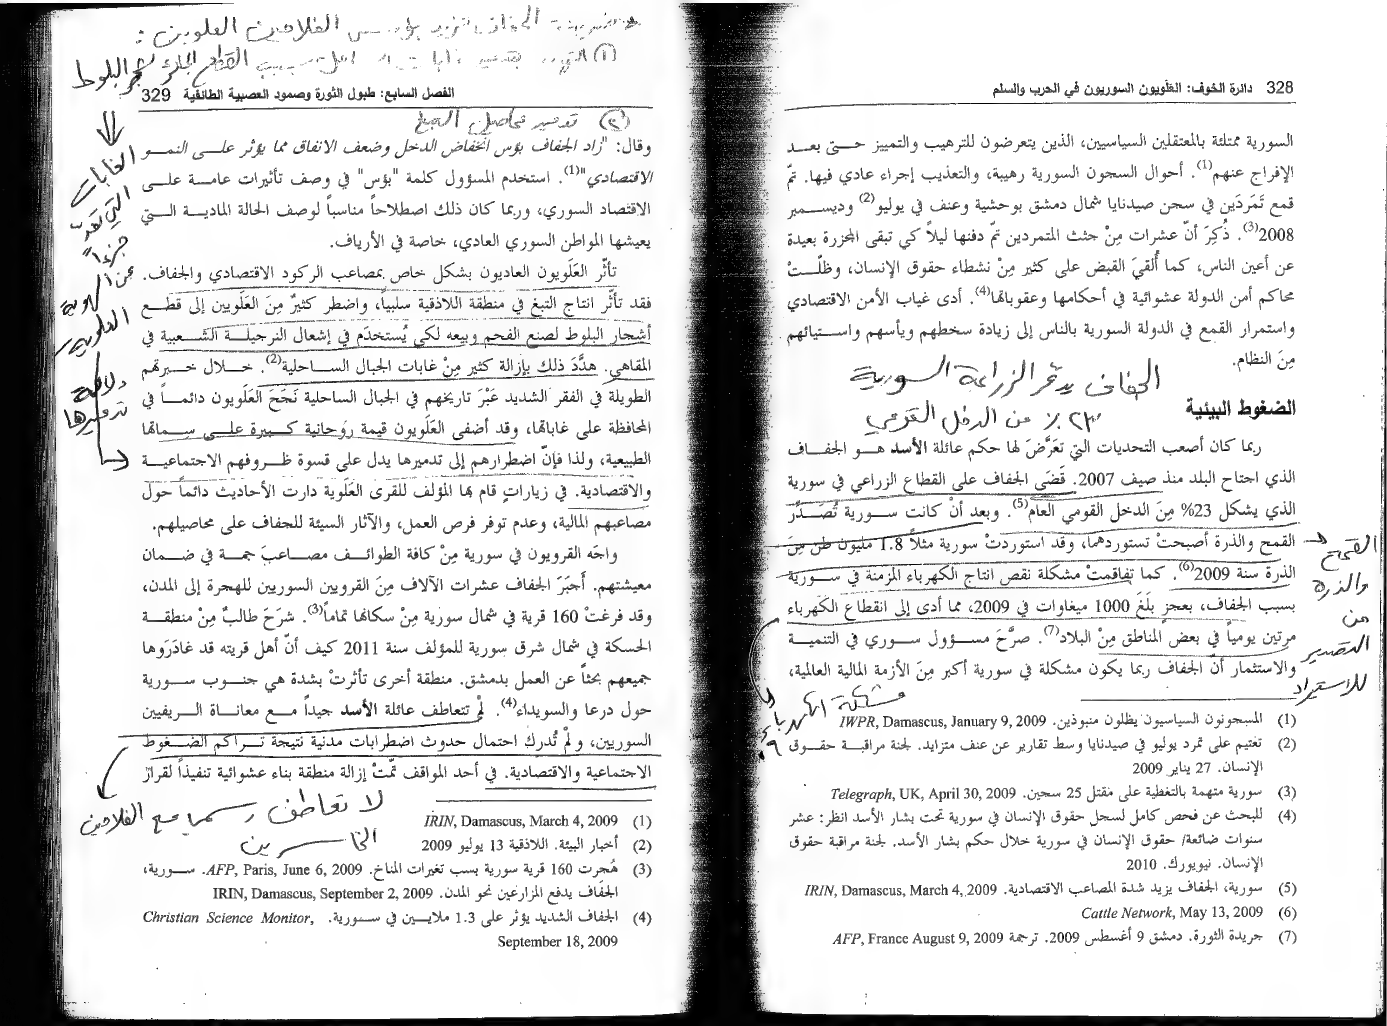 328 دائرة الخوف: العَلَويون السوريون في الحرب والسلم
السورية ممتلئة بالمعتقلين السياسيين، الذين يتعرضون للترهيب والتمييز حتى بعد
الإفراج عنهم(1). أحوال السجون السورية رهيبة، والتعذيب إجراء عادي فيها. تمّ
قمع تَمَرّدَين في سجن صيدنايا شمال دمشق بوحشية وعنف في يوليو(2) وديسمبر
2008(3). ذُكِرَ أنّ عشرات مِنْ جثث المتمردين تمّ دفنها ليلاً كي تبقى المجزرة بعيدة
عن أعين الناس، كما أُلقيَ القبض على كثير مِنْ نشطاء حقوق الإنسان، وظلّتْ
محاكم أمن الدولة عشوائية في أحكامها وعقوباتها(4). أدى غياب الأمن الاقتصادي
واستمرار القمع في الدولة السورية بالناس إلى زيادة سخطهم ويأسهم واستيائهم
مِنَ النظام.
الجفاف يدمّر الزراعة السورية
٢٣٪ من الدخل القومي
الضغوط البيئية
ربما كان أصعب التحديات التي تعَرَّضَ لها حكم عائلة الأسد هو الجفاف
الذي اجتاح البلد منذ صيف 2007. قَضَى الجفاف على القطاع الزراعي في سورية
الذي يشكل 23% مِنَ الدخل القومي العام(5). وبعد أنْ كانت سورية تُصَدِّرُ
القمح والذرة أصبحتْ تستوردهما، وقد استوردتْ سورية مثلاً 1.8 مليون طن مِنَ
الذرة سنة 2009(6). كما تفاقمتْ مشكلة نقص انتاج الكهرباء المزمنة في سورية
بسبب الجفاف، بعجزٍ بلَغَ 1000 ميغاوات في 2009، مما أدى إلى انقطاع الكهرباء
مرتين يومياً في بعض المناطق مِنْ البلاد(7). صرَّحَ مسؤول سوري في التنمية
والاستثمار أنّ الجفاف ربما يكون مشكلة في سورية أكبر مِنَ الأزمة المالية العالمية،
القمح
والذرة
من
التصدير
للاستيراد
مشكلة الكهرباء
٠٩
(1) المسجونون السياسيون يظلون منبوذين. IWPR, Damascus, January 9, 2009
(2) تعتيم على تمرد يوليو في صيدنايا وسط تقارير عن عنف متزايد. لجنة مراقبة حقوق
الإنسان. 27 يناير 2009
(3) سورية متهمة بالتغطية على مقتل 25 سجين. Telegraph, UK, April 30, 2009
(4) للبحث عن فحص كامل لسجل حقوق الإنسان في سورية تحت بشار الأسد انظر: عشر
سنوات ضائعة/ حقوق الإنسان في سورية خلال حكم بشار الأسد. لجنة مراقبة حقوق
الإنسان. نيويورك. 2010
(5) سورية، الجفاف يزيد شدة المصاعب الاقتصادية. IRIN, Damascus, March 4, 2009
(6) Cattle Network, May 13, 2009
(7) جريدة الثورة. دمشق 9 أغسطس 2009. ترجمة AFP, France August 9, 2009
الجفاف تزيد بؤس الفلاحين العلويين:
① بسبب القطاع الجائر لشجر البلوط
الفصل السابع: طبول الثورة وصمود العصبية الطائفية 329
② تدمير محاصيل التبغ
وقال: "زاد الجفاف بؤس انخفاض الدخل وضعف الانفاق مما يؤثر على النمو
الاقتصادي"(1). استخدم المسؤول كلمة "بؤس" في وصف تأثيرات عامة على
الاقتصاد السوري، وربما كان ذلك اصطلاحاً مناسباً لوصف الحالة المادية التي
يعيشها المواطن السوري العادي، خاصة في الأرياف.
تأثّر العَلَويون العاديون بشكل خاص بمصاعب الركود الاقتصادي والجفاف.
فقد تأثّر انتاج التبغ في منطقة اللاذقية سلبياً، واضطر كثيرٌ مِنَ العَلَويين إلى قطع
أشجار البلوط لصنع الفحم وبيعه لكي يُستخدَم في إشعال النرجيلة الشعبية في
المقاهي. هدَّدَ ذلك بإزالة كثير مِنْ غابات الجبال الساحلية(2). خلال خبرتهم
الطويلة في الفقر الشديد عَبْرَ تاريخهم في الجبال الساحلية نَجَحَ العَلَويون دائماً في
المحافظة على غاباتها، وقد أضفى العَلَويون قيمة روحانية كبيرة على سماتها
الطبيعية، ولذا فإنّ اضطرارهم إلى تدميرها يدل على قسوة ظروفهم الاجتماعية
والاقتصادية. في زيارات قام بها المؤلف للقرى العَلَوية دارت الأحاديث دائماً حول
مصاعبهم المالية، وعدم توفر فرص العمل، والآثار السيئة للجفاف على محاصيلهم.
واجَه القرويون في سورية مِنْ كافة الطوائف مصاعبَ جمة في ضمان
معيشتهم. أَجبَرَ الجفاف عشرات الآلاف مِنَ القرويين السوريين للهجرة إلى المدن،
وقد فرغتْ 160 قرية في شمال سورية مِنْ سكانها تماماً(3). شرَحَ طالبٌ مِنْ منطقة
الحسكة في شمال شرق سورية للمؤلف سنة 2011 كيف أنّ أهل قريته قد غادَرَوها
جميعهم بحثاً عن العمل بدمشق. منطقة أخرى تأثرتْ بشدة هي جنوب سورية
حول درعا والسويداء(4). لمْ تتعاطف عائلة الأسد جيداً مع معاناة الريفيين
السوريين، ولمْ تُدرك احتمال حدوث اضطرابات مدنية نتيجة تراكم الضغوط
الاجتماعية والاقتصادية. في أحد المواقف تمّتْ إزالة منطقة بناء عشوائية تنفيذاً لقرار
الغابات
التي تعدّ
جزءاً
من الهوية
العلوية
دلالة
تدميرها
لا تعاطف رسمياً مع الفلاحين
الخاسرين
(1) IRIN, Damascus, March 4, 2009
(2) أخبار البيئة. اللاذقية 13 يوليو 2009
(3) هُجرت 160 قرية سورية بسب تغيرات المناخ. AFP, Paris, June 6, 2009. سورية،
الجفاف يدفع المزارعين نحو المدن. IRIN, Damascus, September 2, 2009
(4) الجفاف الشديد يؤثر على 1.3 ملايين في سورية. Christian Science Monitor,
September 18, 2009